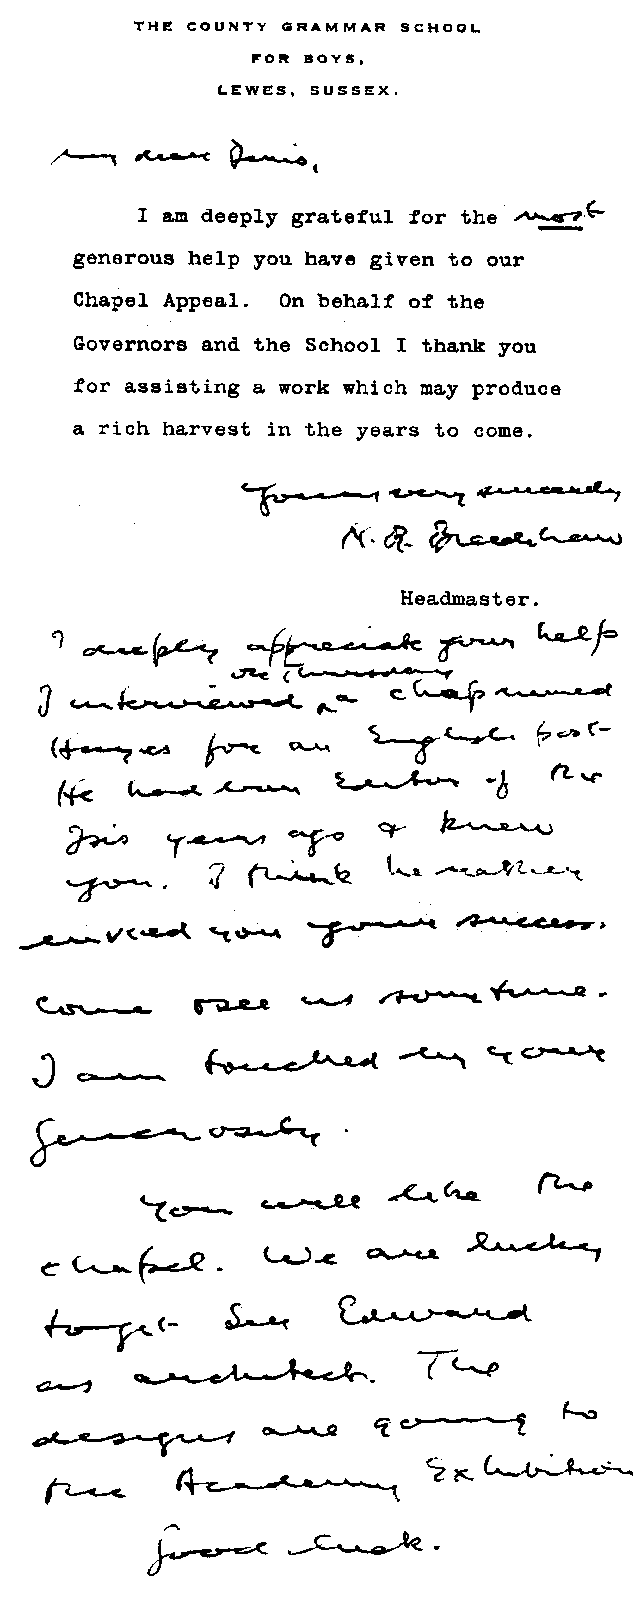 THE COUNTY GRAMMAR SCHOOL
FOR BOYS,
LEWES, SUSSEX.
My dear Denis,
I am deeply grateful for the most
generous help you have given to our
Chapel Appeal. On behalf of the
Governors and the School I thank you
for assisting a work which may produce
a rich harvest in the years to come.
Yours very sincerely
N. R. Bradshaw
Headmaster.
I deeply appreciate your help
on Thursday
I interviewed a chap named
for an English post
He had been Editor of the
Isis years ago & knew
you. I think he rather
envied you your success.
Come & see us sometime.
I am touched by your
generosity.
You will like the
chapel. We are lucky
to get Sir Edward
as architect. The
designs are going to
the Academy Exhibition
Good luck.